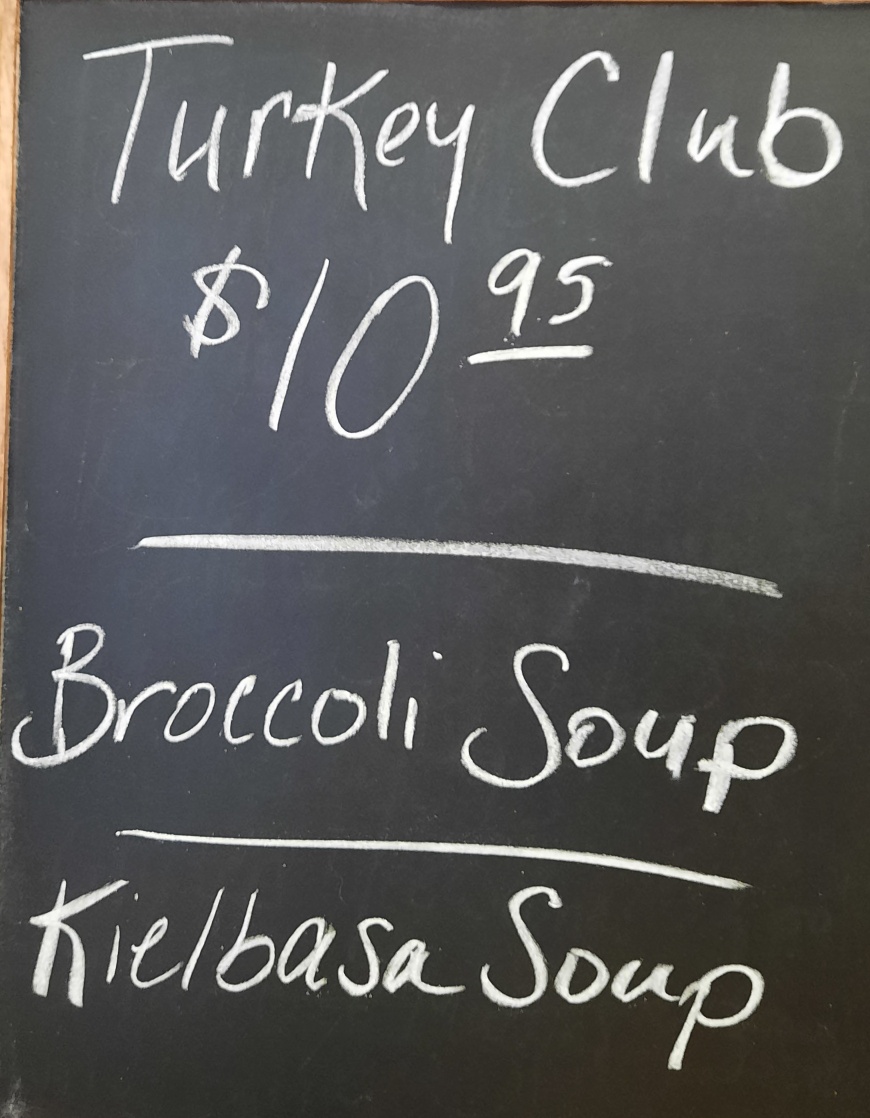 Turkey Club
$10 95
Broccoli Soup
Kielbasa Soup